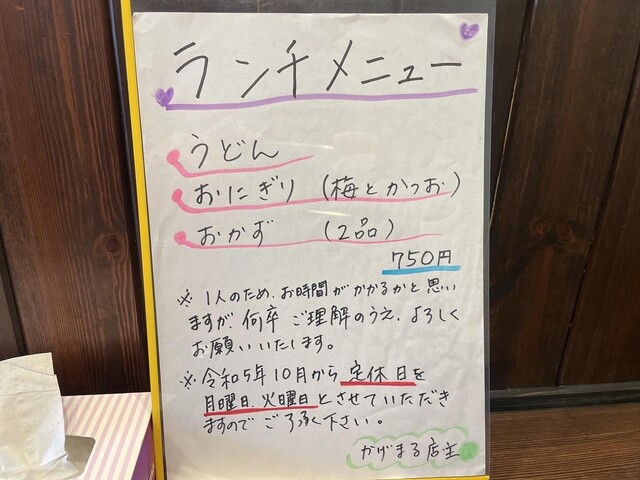 ランチメニュー
うどん
おにぎり (梅とかつお)
おかず (2品)
750円
※ 1人のため、お時間がかかるかと思い
ますが、何卒ご理解のうえ、よろしく
お願いいたします。
※ 令和5年10月から定休日を
月曜日、火曜日とさせていただき
ますのでご了承く下さい。
かげまる店主